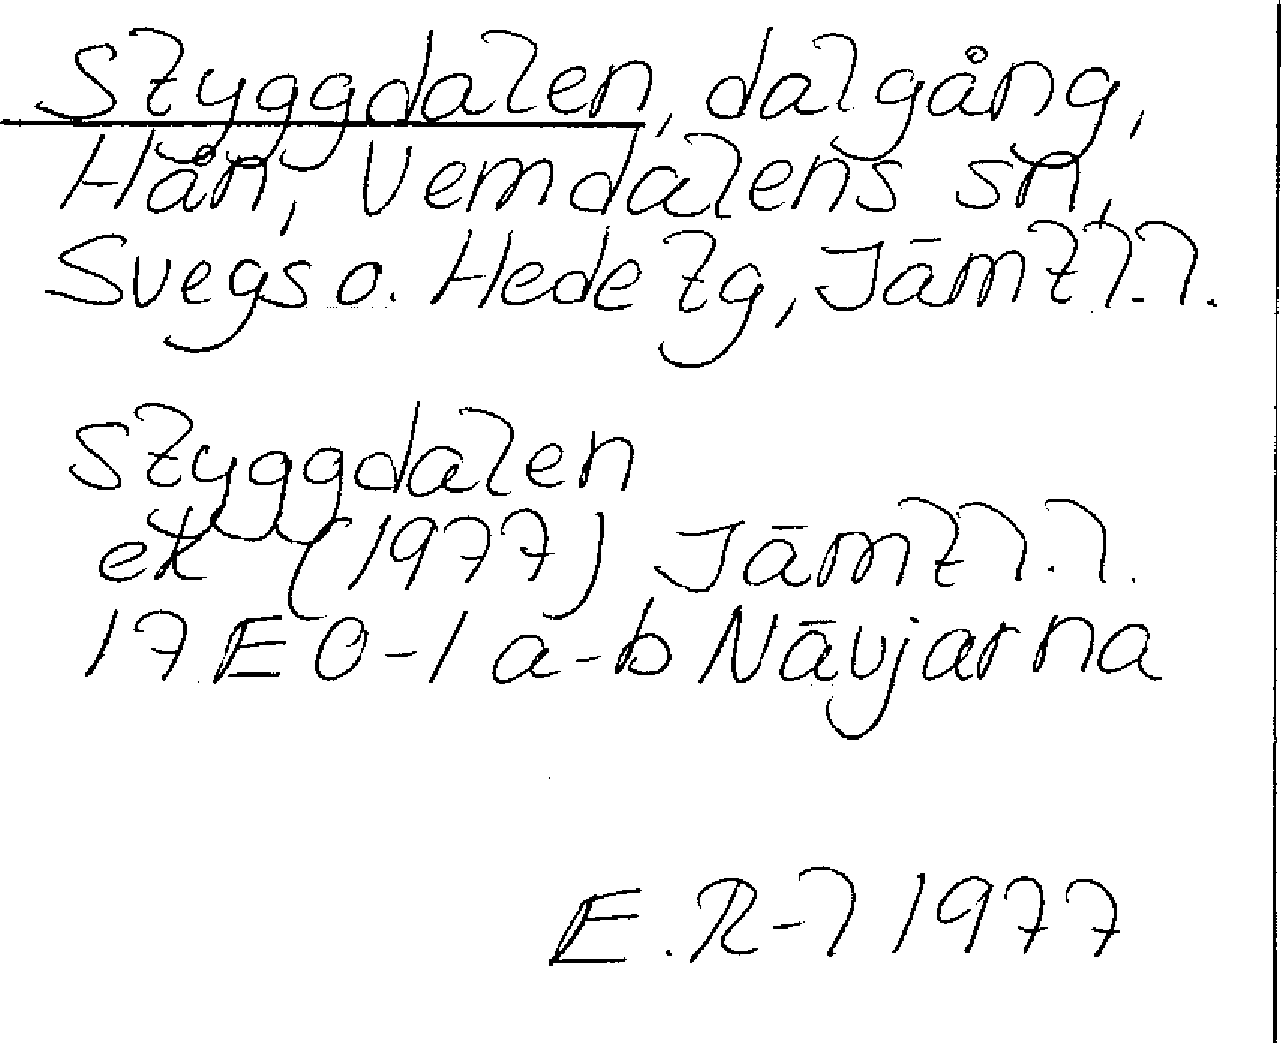 Styggdalen, dalgång,
Hån, Vemdalens sn,
Svegs o. Hede tg, Jämtl.l.
Styggdalen
ek (1977) Jämtl.l.
17 E 0-1 a-b Nävjarna
E.R-l 1977